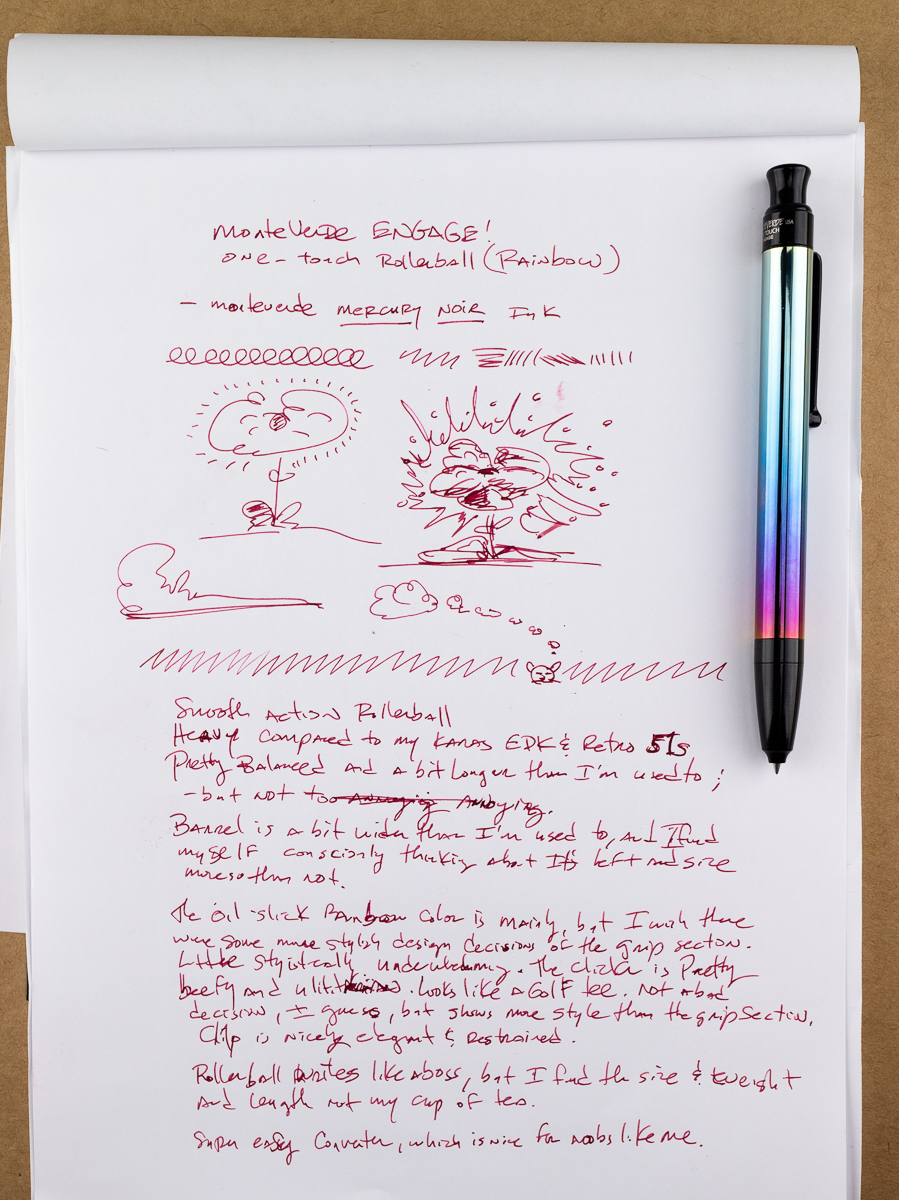 Monteverde ENGAGE!
one-touch Rollerball (Rainbow)
- monteverde MERCURY NOIR Ink
VERDE USA
TOUCH
Smooth Action Rollerball
Heavy compared to my Karas EDK & Retro 51s
Pretty Balanced and a bit longer than I'm used to;
- but not too annoying annoying.
Barrel is a bit wider than I'm used to, and I find
myself consciously thinking about It's heft and size
more so than not.
The oil-slick Rainbow color is manly, but I wish there
were some more stylish design decisions of the grip section.
Little stylistically underwhelming. The clicker is Pretty
beefy and utilitarian. Looks like a Golf tee. Not a bad
decision, I guess, but shows more style than the grip section.
Clip is nicely elegant & restrained.
Rollerball writes like a boss, but I find the size & weight
and length not my cup of tea.
Super easy Converter, which is nice for noobs like me.